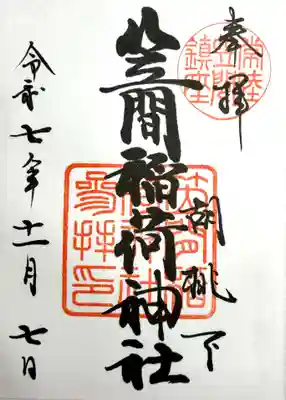 奉拝
常陸
笠間
鎮座
胡桃下
笠間稲荷神社
參拝印
令和七年十一月七日